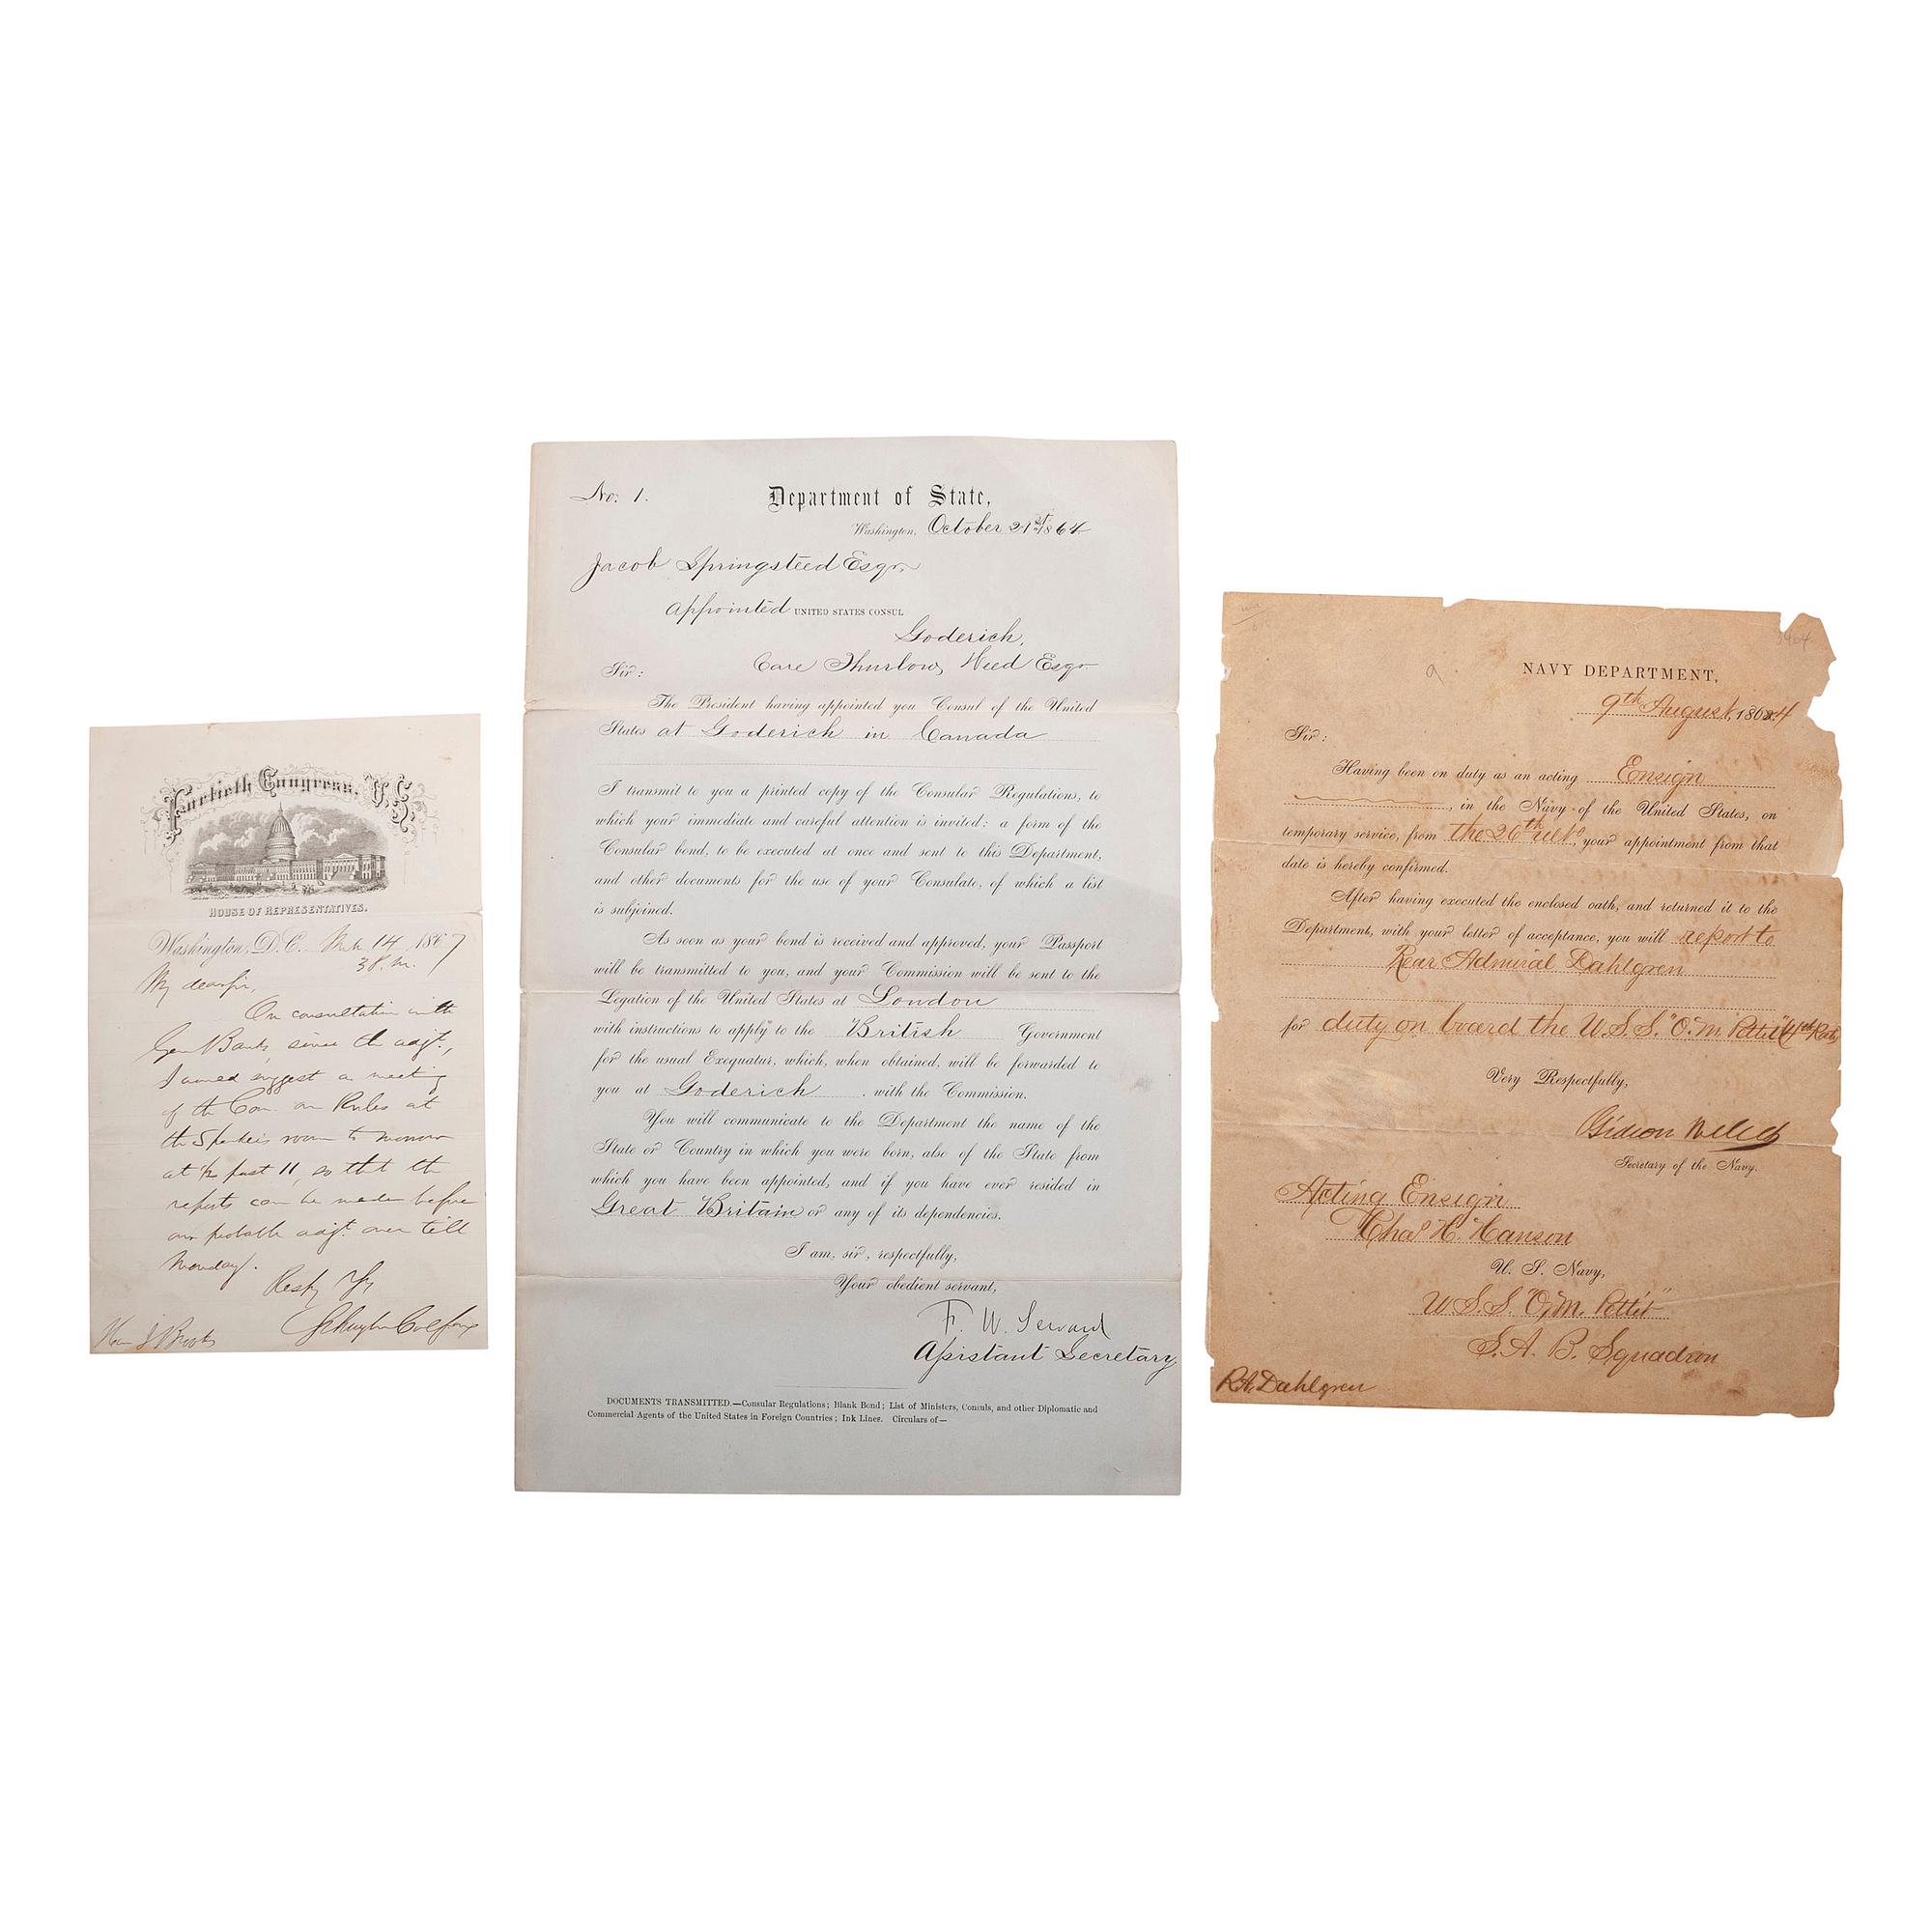 Fortieth Congress, U.S.
HOUSE OF REPRESENTATIVES.
Washington, D.C. Mch 14 1867
3 P.M.
My dear sir,
On consultation with
Gen Banks, since the adjt.,
I would suggest a meeting
of the Com. on Rules at
the Speaker's room to morrow
at ½ past 11, so that the
reports can be made before
our probable adjt. over till
Monday.
Respy Yrs
Schuyler Colfax
Hon J Brooks
No. 1.
Department of State,
Washington, October 21st 1864
Jacob Springsteed Esqr.
Appointed UNITED STATES CONSUL
Goderich,
Care Thurlow Weed Esqr
Sir:
The President having appointed you Consul of the United
States at Goderich in Canada
I transmit to you a printed copy of the Consular Regulations, to
which your immediate and careful attention is invited: a form of the
Consular bond, to be executed at once and sent to this Department,
and other documents for the use of your Consulate, of which a list
is subjoined.
As soon as your bond is received and approved, your Passport
will be transmitted to you, and your Commission will be sent to the
Legation of the United States at London
with instructions to apply to the British Government
for the usual Exequatur, which, when obtained, will be forwarded to
you at Goderich, with the Commission.
You will communicate to the Department the name of the
State or Country in which you were born, also of the State from
which you have been appointed, and if you have ever resided in
Great Britain or any of its dependencies.
I am, sir, respectfully,
Your obedient servant,
F. W. Seward
Assistant Secretary
DOCUMENTS TRANSMITTED.—Consular Regulations; Blank Bond; List of Ministers, Consuls, and other Diplomatic and
Commercial Agents of the United States in Foreign Countries; Ink Lines. Circulars of—
NAVY DEPARTMENT,
9th August, 1864
Sir:
Having been on duty as an acting Ensign
, in the Navy of the United States, on
temporary service, from the 26th ulto, your appointment from that
date is hereby confirmed.
After having executed the enclosed oath, and returned it to the
Department, with your letter of acceptance, you will report to
Rear Admiral Dahlgren
for duty on board the U.S.S. "O. M. Pettit" (4th Rate)
Very Respectfully,
Gideon Welles
Secretary of the Navy.
Acting Ensign
Chas H. Hanson
U. S. Navy,
U.S.S. "O. M. Pettit"
S. A. B. Squadron
R.A. Dahlgren